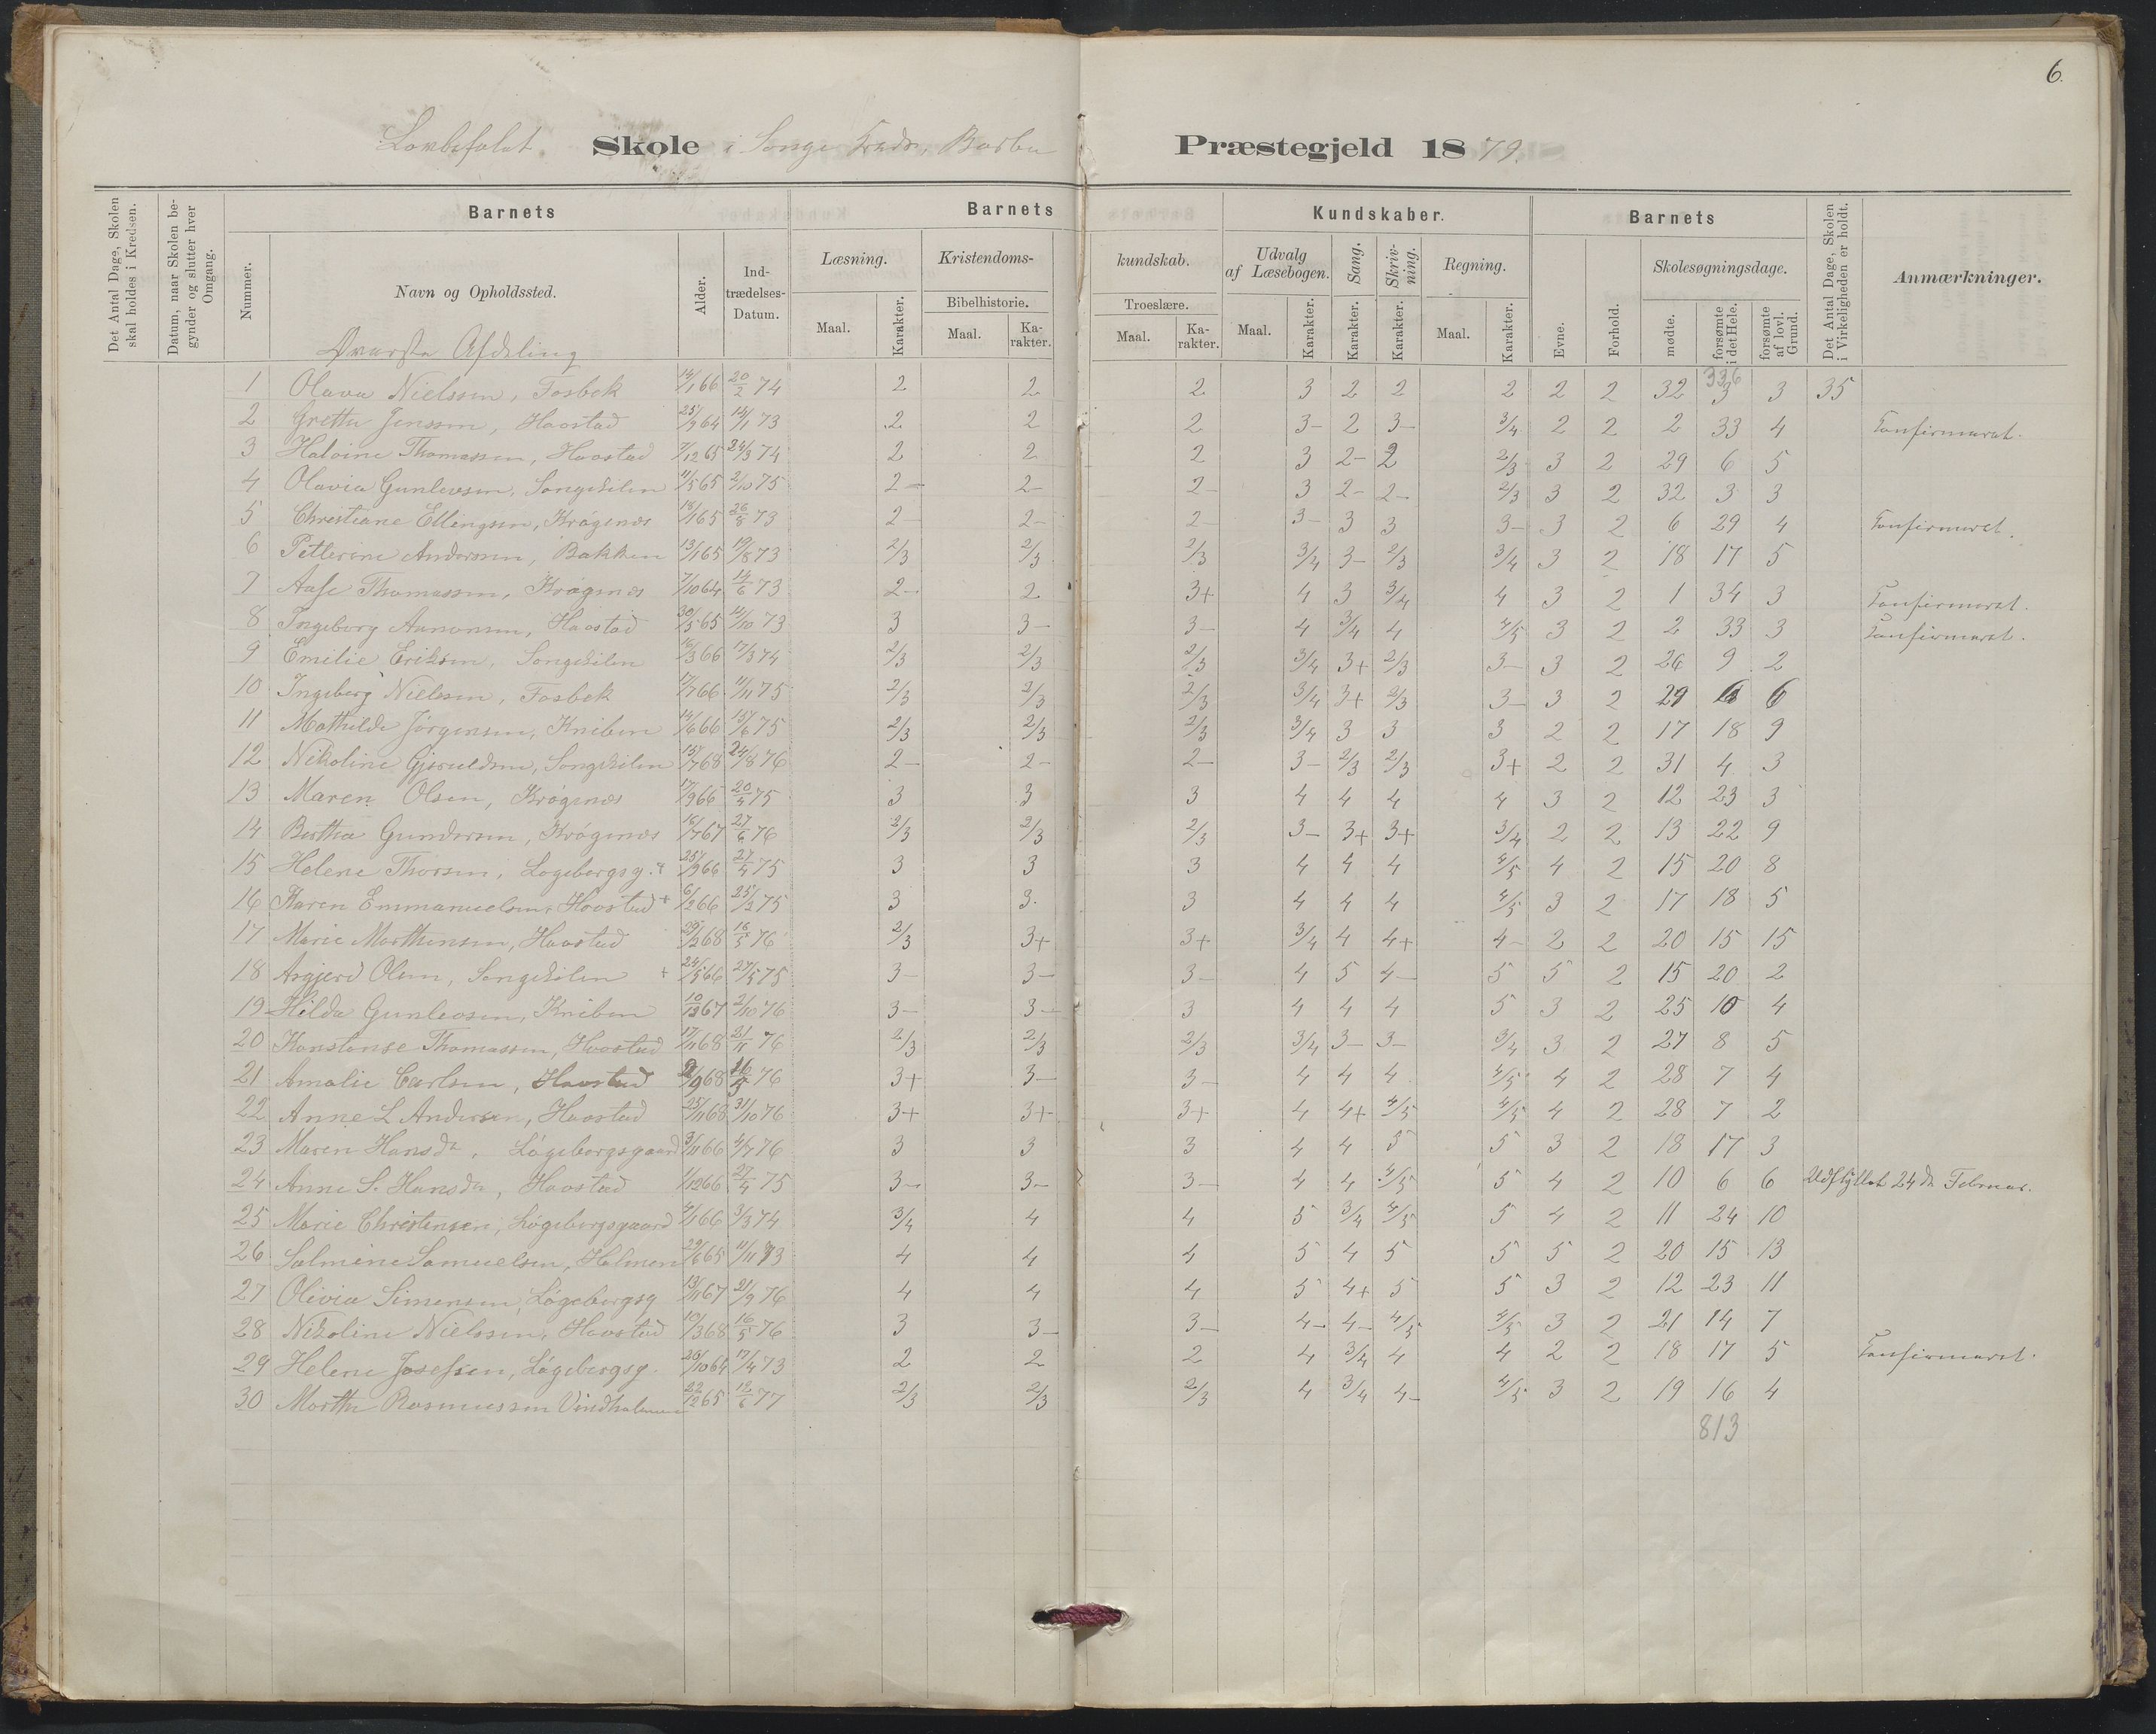 6.
Lovbefalet Skole i Songe Kreds, Barbu Præstegjeld 1879.
Det Antal Dage, Skolen skal holdes i Kredsen.
Datum, naar Skolen begynder og slutter hver Omgang.
Barnets Barnets Kundskaber. Barnets
Nummer. Navn og Opholdssted. Alder. Indtrædelses-Datum. Læsning. Kristendoms- kundskab. Udvalg af Læsebogen. Sang. Skrivning. Regning. Evne. Forhold. Skolesøgningsdage. Det Antal Dage, Skolen i Virkeligheden er holdt. Anmærkninger.
Bibelhistorie. Troeslære.
Maal. Karakter. Maal. Karakter. Maal. Karakter. Maal. Karakter. Karakter. Karakter. Maal. Karakter. mødte. forsømte i det Hele. forsømte af lovl. Grund.
Øverste Afdeling
336
1 Olava Nielssen, Fosbek 14/1 66 20/2 74 2 2 2 3 2 2 2 2 2 32 3 3 35
2 Grethe Jenssen, Haostad 25/9 64 14/1 73 2 2 2 3- 2 3- 3/4 2 2 2 33 4 Konfirmeret.
3 Halvine Thomassen, Haostad 7/12 65 24/3 74 2 2 2 3 2- 2 2/3 3 2 29 6 5
4 Olavia Gunlevsen, Songekilen 11/5 65 2/10 75 2- 2- 2- 3 2- 2- 2/3 3 2 32 3 3
5 Christiane Ellingsen, Krøgenes 18/1 65 26/8 73 2- 2- 2- 3- 3 3 3- 3 2 6 29 4 Konfirmeret.
6 Petterine Anderssen, Bakken 13/1 65 19/8 73 2/3 2/3 2/3 3/4 3- 2/3 3/4 3 2 18 17 5
7 Aase Thomassen, Krøgenes 7/10 64 14/6 73 2- 2 3+ 4 3 3/4 4 3 2 1 34 3 Konfirmeret.
8 Ingeborg Aanonsen, Haostad 30/5 65 11/10 73 3 3- 3- 4 3/4 4 4/5 3 2 2 33 3 Konfirmeret.
9 Emilie Eriksen, Songekilen 16/3 66 17/3 74 2/3 2/3 2/3 3/4 3+ 2/3 3- 3 2 26 9 2
10 Ingeborg Nielssen, Fosbek 17/7 66 11/11 75 2/3 2/3 2/3 3/4 3+ 2/3 3- 3 2 29 6 6
11 Mathilde Jørgensen, Kniben 14/6 66 15/6 75 2/3 2/3 2/3 3/4 3 3 3 2 2 17 18 9
12 Nikoline Gjeruldsen, Songekilen 15/7 68 24/8 76 2- 2- 2- 3- 2/3 2/3 3+ 2 2 31 4 3
13 Maren Olsen, Krøgenes 17/9 66 20/4 75 3 3 3 4 4 4 4 3 2 12 23 3
14 Berthe Gundersen, Krøgenes 16/7 67 27/6 76 2/3 2/3 2/3 3- 3+ 3+ 3/4 2 2 13 22 9
15 Helene Thorsen, Løgebergsg. + 25/9 66 27/4 75 3 3 3 4 4 4 4/5 4 2 15 20 8
16 Karen Emmanuelsen, Haostad + 6/2 66 25/2 75 3 3 3 4 4 4 4/5 3 2 17 18 5
17 Marie Morthensen, Haostad 29/2 68 16/5 76 2/3 3+ 3+ 3/4 4 4+ 4- 2 2 20 15 15
18 Asgjerd Olsen, Songekilen + 24/5 66 27/5 75 3- 3- 3- 4 5 4- 5 5 2 15 20 2
19 Hilda Gunlevsen, Kniben 67 2/10 76 3- 3- 3 4 4 4 5 3 2 25 10 4
20 Konstanse Thomassen, Haostad 17/11 68 21/11 76 2/3 2/3 2/3 3/4 3- 3- 3/4 3 2 27 8 5
21 Amalie Carlsen, Haostad 2/9 68 16/5 76 3+ 3- 3- 4 4 4 4/5 4 2 28 7 4
22 Anne L Andersen, Haostad 25/11 68 31/10 76 3+ 3+ 3+ 4 4+ 4/5 4/5 4 2 28 7 2
23 Maren Hansdr, Løgebergsgaard 3/11 66 4/7 76 3 3 3 4 4 5 5 3 2 18 17 3
24 Anne S. Hansdr, Haostad 1/12 66 27/4 75 3- 3- 3- 4 4 4/5 5 4 2 10 6 6 Udflyttet 24de Februar.
25 Marie Christensen, Løgebergsgaard 4/1 66 3/3 74 3/4 4 4 5 3/4 4/5 5 4 2 11 24 10
26 Salmine Samuelsen, Holmen 29/6 65 11/11 73 4 4 4 5 4 5 5 5 2 20 15 13
27 Olivia Simensen, Løgebergsg 13/11 67 21/9 76 4 4 4 5 4+ 5 5 3 2 12 23 11
28 Nikoline Nielssen, Haostad 10/3 68 16/5 76 3 3- 3- 4- 4- 4/5 4/5 3 2 21 14 7
29 Helene Josefsen, Løgebergsg. 26/10 64 17/4 73 2 2 2 4 3/4 4 4 2 2 18 17 5 Konfirmeret.
30 Morthe Rasmussen Vindholmen 22/12 65 12/6 77 2/3 2/3 2/3 4 3/4 4- 4/5 3 2 19 16 4
813